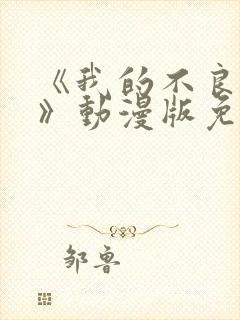 《我的不良
》動漫版免
邹鲁